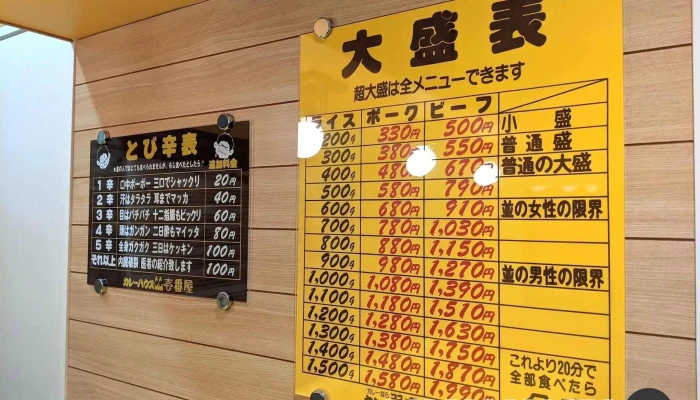 とび辛表
追加料金
1辛 口中ボーボー 三口でシャックリ 20円
2辛 汗はタラタラ 耳までマッカ 40円
3辛 目はパチパチ 十二指腸もビックリ 60円
4辛 頭はガンガン 二日酔もマイッタ 80円
5辛 全身ガクガク 三日はケッキン 100円
それ以上 内臓破裂 医者の紹介致します 100円
カレーハウス 壱番屋
大盛表
超大盛は全メニューできます
ライス ポーク ビーフ
200g 330円 500円 小盛
300g 380円 550円 普通盛
400g 480円 670円 普通の大盛
500g 580円 790円
600g 680円 910円 並の女性の限界
700g 780円 1,030円
800g 880円 1,150円
900g 980円 1,270円 並の男性の限界
1,000g 1,080円 1,390円
1,100g 1,180円 1,510円
1,200g 1,280円 1,630円
1,300g 1,380円 1,750円
1,400g 1,480円 1,870円
1,500g 1,580円 1,990円
これより20分で
全部食べたら
カレーなら